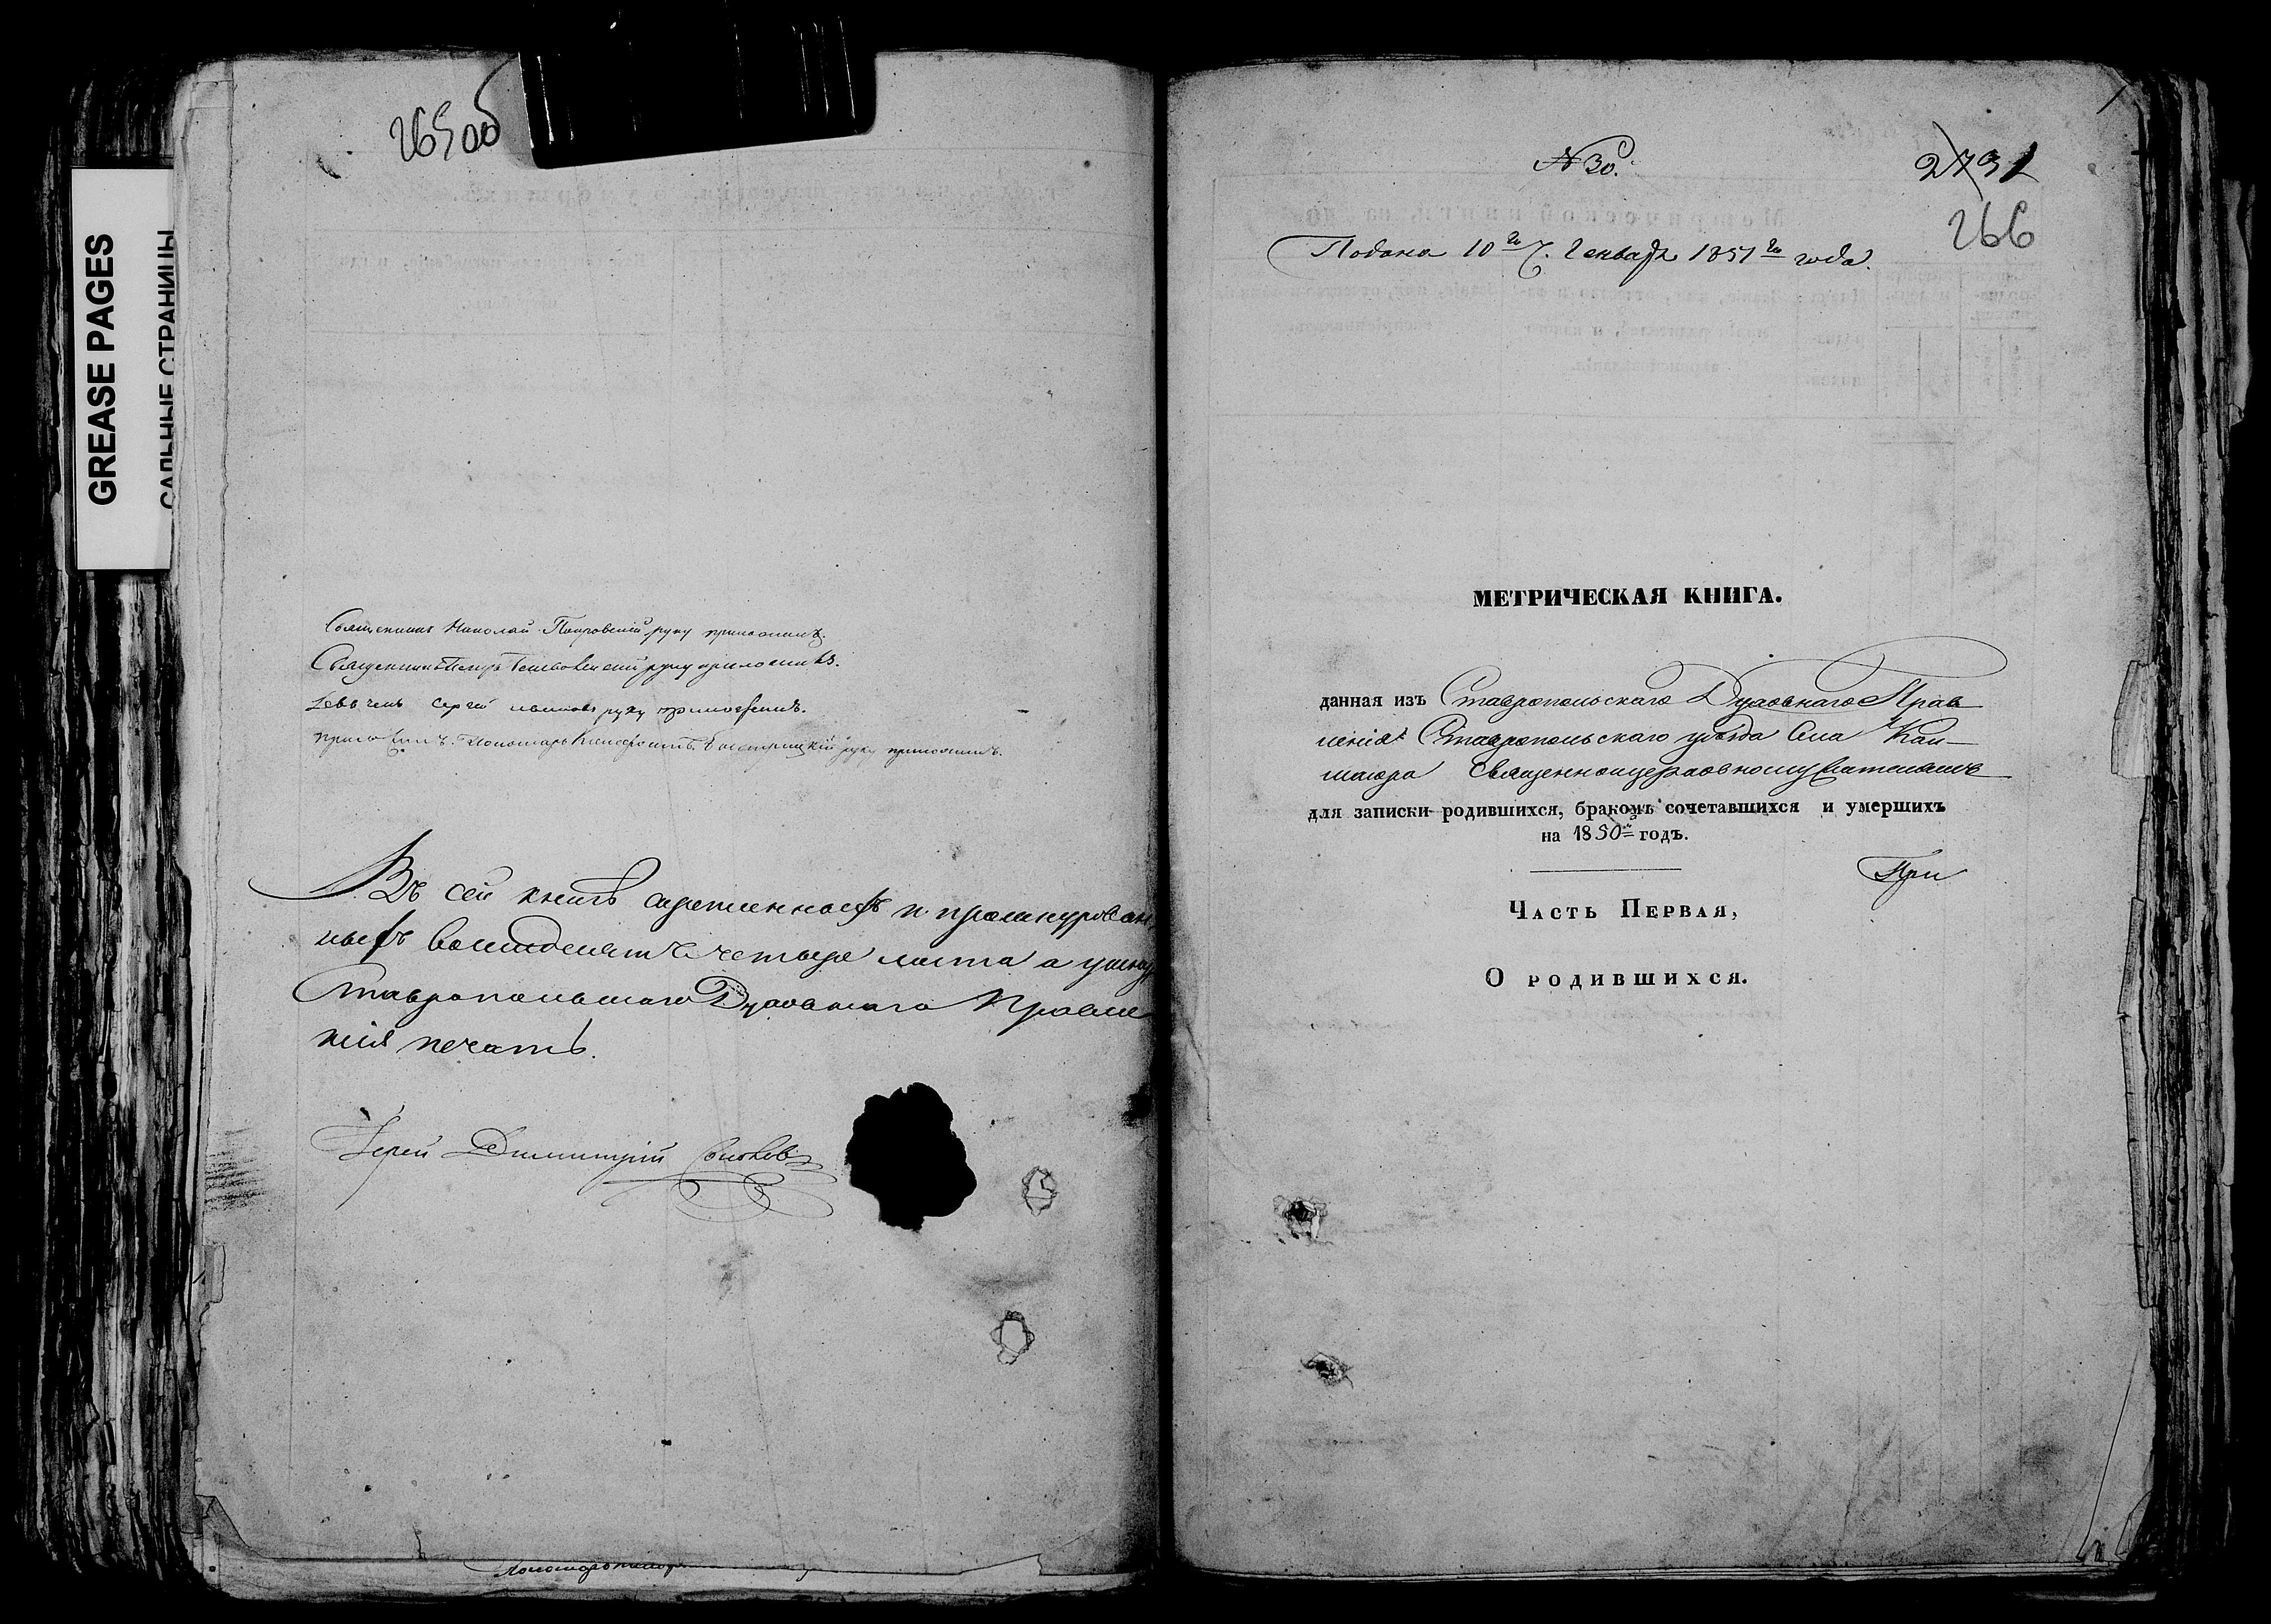 GREASE PAGES
САЛЬНЫЕ СТРАНИЦЫ
265об
Священникъ Николай Покровскій руку приложилъ.
Священникъ Петръ руку приложилъ.
Сергей руку приложилъ.
Пономарь руку приложилъ.
Въ сей книгѣ скрепленныхъ и прошнурован
ныхъ восмдесятъ четыре листа а у шнура
Ставропольскаго Духовнаго Правле
нія печать.
Іерей Димитрій
1
№ 30.
2731
266
Подана 10го Генваря 1851го года.
МЕТРИЧЕСКАЯ КНИГА.
данная изъ Ставропольскаго Духовнаго Прав
ленія Ставропольскаго уѣзда Села Кан-
священноцерковнослужителямъ
для записки родившихся, бракомъ сочетавшихся и умершихъ
на 1850й годъ.
При
Часть Первая,
О родившихся.